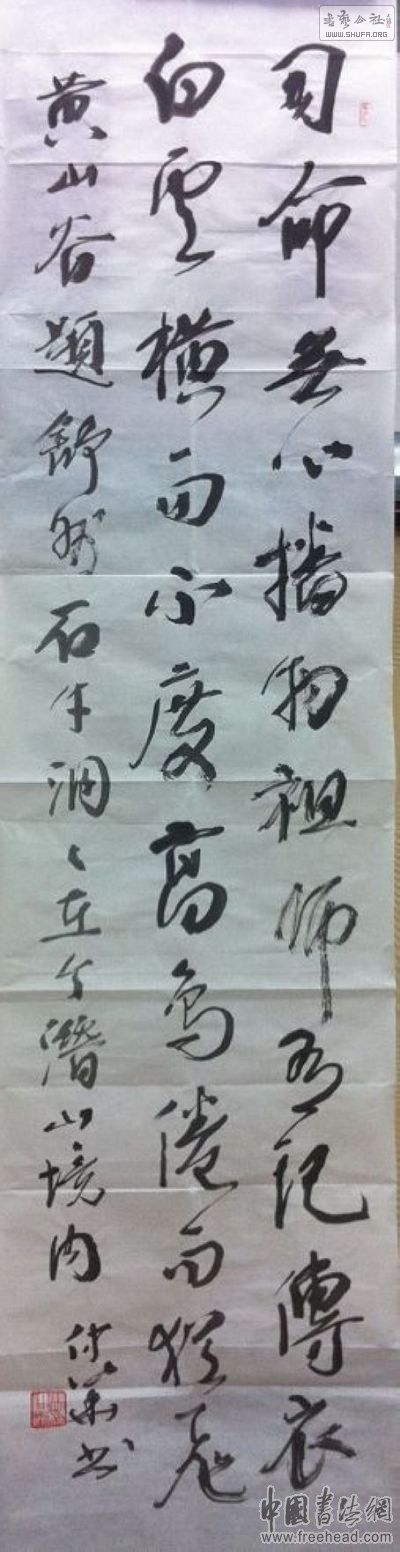 书艺公社
WWW.SHUFA.ORG
司命無心播物祖師有記傳衣
白雲橫而不度高鳥倦而猶飛
黄山谷題舒州石牛洞々在今潛山境内 書
中國書法網
www.freehead.com